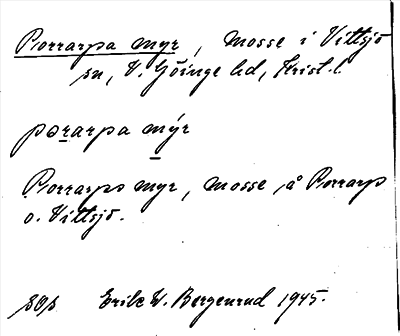 Porrarpa myr, mosse i Vittsjö
sn, V. Göinge hd, Krist. l.
porarpa mýr
Porrarps myr, mosse å Porrarp
o. Vittsjö.
Erik W. Bergenrud 1945.